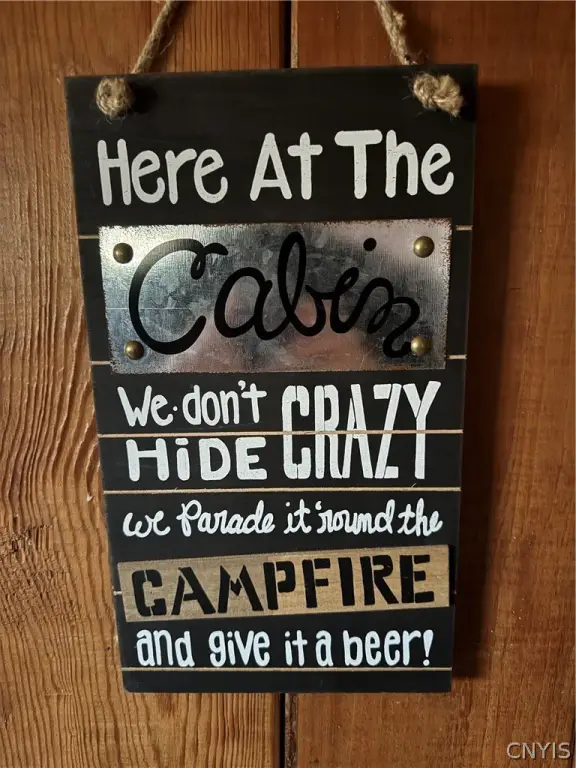 Here At The
Cabin
We don't
HiDE CRAZY
we Parade it 'round the
CAMPFIRE
and give it a beer!
CNYIS